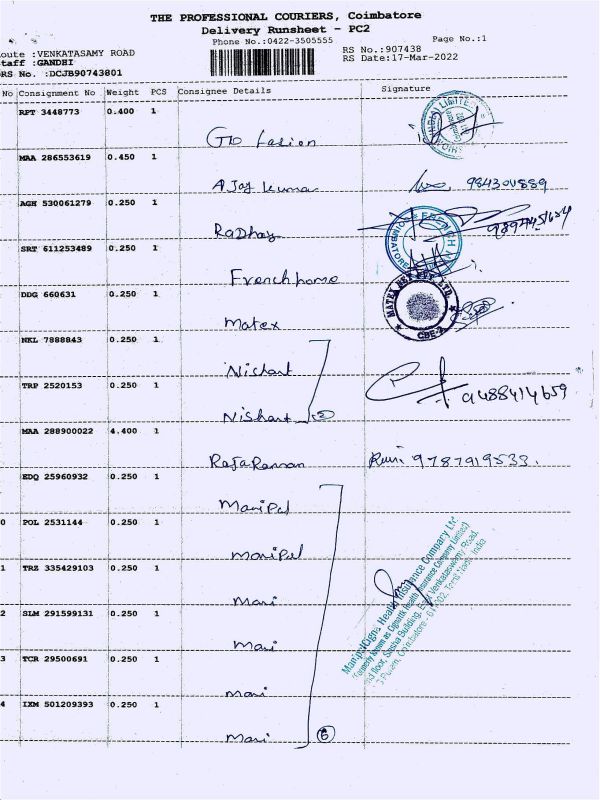 THE PROFESSIONAL COURIERS, Coimbatore
Delivery Runsheet - PC2
Phone No.:0422-3505555
Page No.:1
oute :VENKATASAMY ROAD
RS No.:907438
taff :GANDHI
RS Date:17-Mar-2022
RS No. :DCJB90743801
No Consignment No Weight PCS Consignee Details Signature
RPT 3448773 0.400 1
MAA 286553619 0.450 1
AJay kumar
AGH 530061279 0.250 1
RaDhay
SRT 611253489 0.250 1
Frenchhome
DDG 660631 0.250 1
MATEX CBE-2
Matex
NKL 7888843 0.250 1
Nishant
TRP 2520153 0.250 1
9488414659
Nishant 2
MAA 288900022 4.400 1
RajaRaman 9787919533.
EDQ 25960932 0.250 1
ManiPal
0 POL 2531144 0.250 1
ManiPal
1 TRZ 335429103 0.250 1
Mani
2 SLM 291599131 0.250 1
Mani
3 TCR 29500691 0.250 1
Mani
4 IXM 501209393 0.250 1
Mani 6
ManipalCigna Health Insurance Company Ltd
(Formerly known as CignaTTK Health Insurance Company Limited)